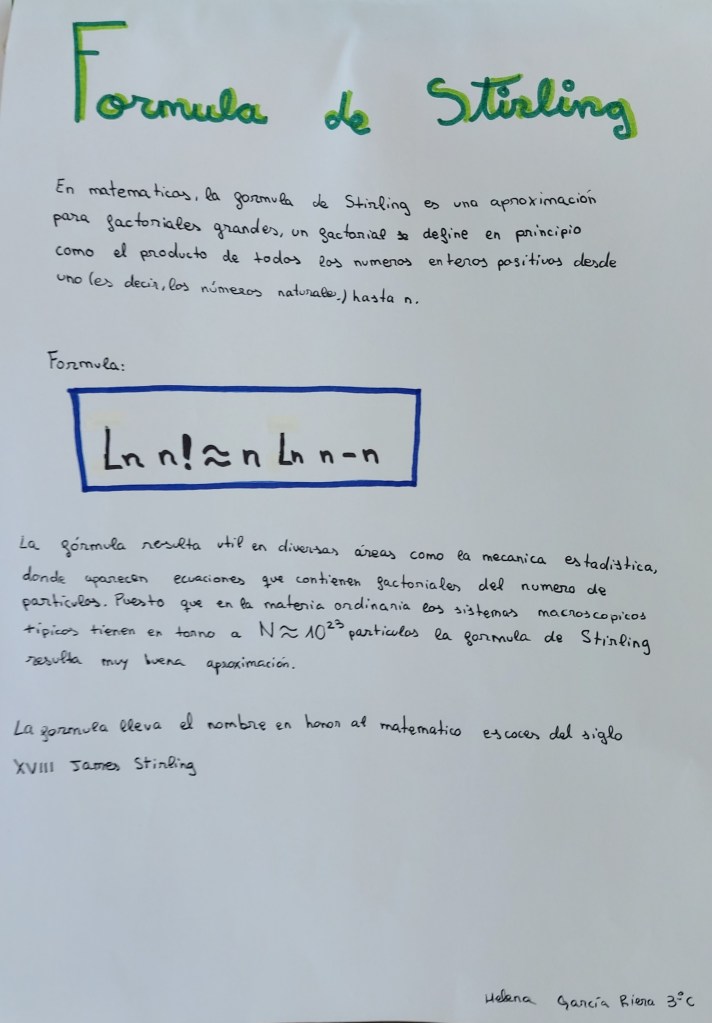 Formula de Stirling
En matematicas, la formula de Stirling es una aproximación
para factoriales grandes, un factorial se define en principio
como el producto de todos los numeros enteros positivos desde
uno (es decir, los números naturales) hasta n.
Formula:
Ln n! ≈ n Ln n - n
La fórmula resulta util en diversas áreas como la mecanica estadistica,
donde aparecen ecuaciones que contienen factoriales del numero de
particulas. Puesto que en la materia ordinaria los sistemas macroscopicos
tipicos tienen en torno a N ≈ 10²³ particulas la formula de Stirling
resulta muy buena aproximación.
La formula lleva el nombre en honor al matematico escoces del siglo
XVIII James Stirling
Helena García Riera 3ºC